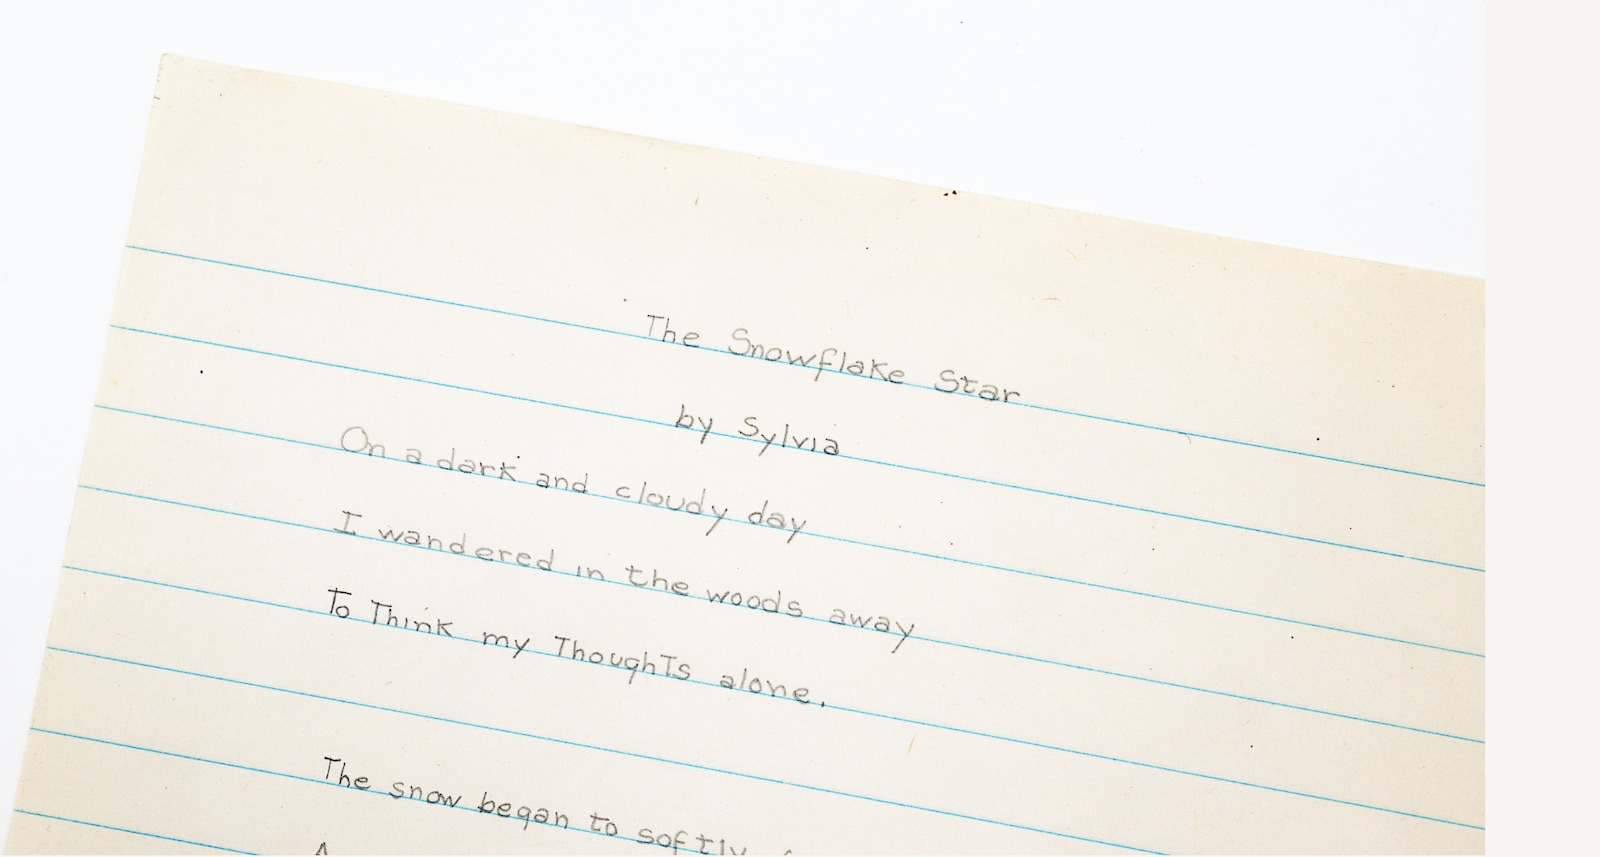 The Snowflake Star
by Sylvia
On a dark and cloudy day
I wandered in the woods away
To Think my Thoughts alone.
The snow began to softly